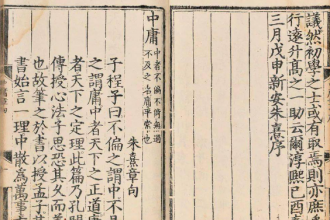 議然初學之士或有取焉則亦庶
行遠升高之一助云爾淳熙己酉
三月戊申新安朱熹序
中庸
中者不偏不倚無過
不及之名庸平常也
朱熹章句
子程子曰不偏之謂中不
之謂庸中者天下之正道庸
者天下之定理此篇乃孔門
傳授心法子思恐其久而差
也故筆之於書以授孟子其
書始言一理中散為萬事